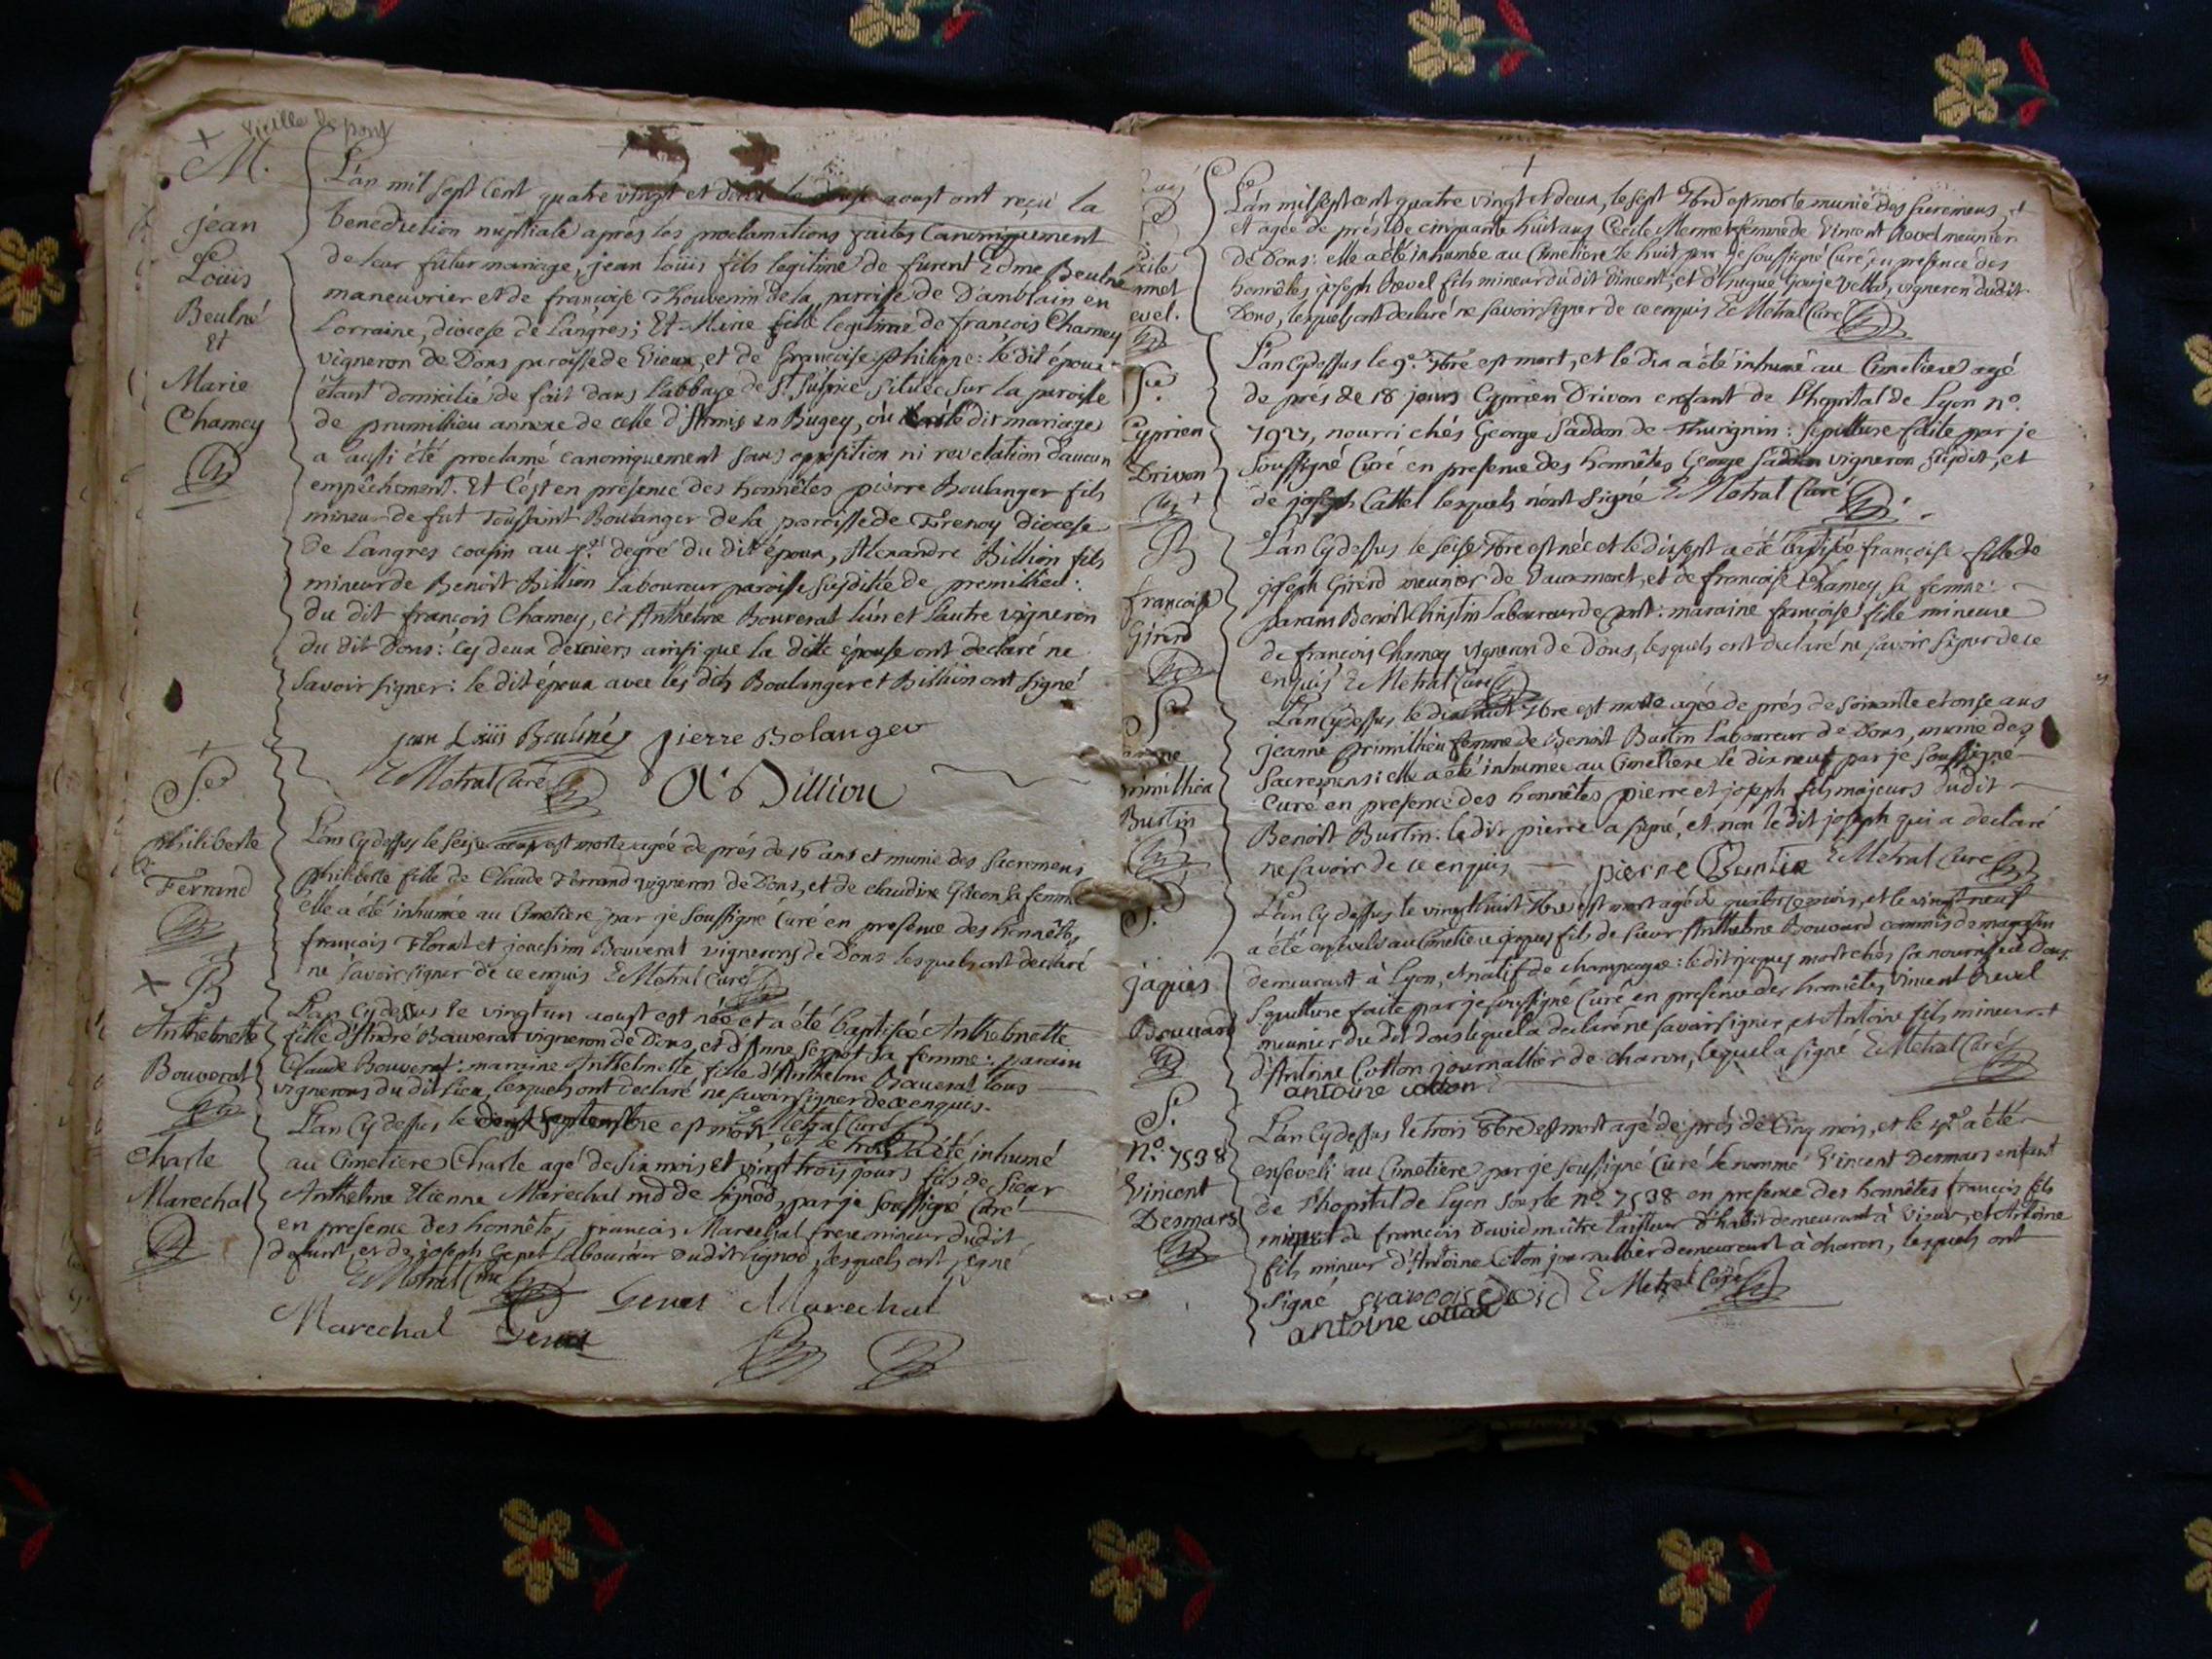 Vieille de pont
M.
jean
Loüis
Beulné
Et
Marie
Chamey
L'an mil sept cent quatre vingt et deux aoust ont reçu la
benediction nuptiale aprés les proclamations faites Canoniquement
de leur futur mariage, jean Loüis fils legitime de furent Edme Beulné
maneuvrier et de françoise Thouvenin de la paroisse de D'amblain en
Lorraine, diocese de Langres; Et Marie fille legitime de françois Chamey
vigneron de Dons paroisse de Vieux, et de françoise philippe: le dit époux
étant domicilié de fait dans L'abbaye de St. Sulpice située sur la paroisse
de prumillieu annexe de celle d'Armis en Bugey, où le dit mariage
a aussi été proclamé canoniquement sans opposition ni revelation d'aucun
empêchement. Et C'est en présence des honnêtes pierre Boulanger fils
mineur de fut Toussaint Boulanger de la paroisse de Frenoy diocese
de Langres cousin au degré du dit époux, Alexandre Billion fils
mineur de Benoît Billion Laboureur paroisse susditte de premillieu:
du dit françois Chamey, et Anthelme Bouverat l'un et l'autre vigneron
du dit Dons: Ces deux derniers ainsi que la ditte épouse ont declaré ne
savoir signer: le dit époux avec les dits Boulanger et Billion ont signé
jean Loüis Beulné pierre Bolanger
E Metral Curé A Billion
Sre
philiberte
Ferrand
L'an Cy dessus le seise aoust est morte agée de prés de 16 ans et munie des Sacremens
philiberte fille de Claude Ferrand vigneron de Dons, et de claudine Gicon sa femme
elle a été inhumée au Cimetiere par je soussigné Curé en presence des honnêtes
françois Florat et joachim Bouverat vignerons de Dons lesquels ont declaré
ne savoir signer de ce enquis E Metral Curé
B
Anthelmette
Bouverat
L'an Cy dessus le vingt un aoust est née et a été baptisée Anthelmette
fille d'André Bouverat vigneron de Dons, et d'Anne Serpot sa femme: parain
Claude Bouverat: maraine Anthelmette fille d'Anthelme Bouverat tous
vignerons du dit Lieu, lesquels ont declaré ne savoir signer de ce enquis.
E Metral Curé
Charle
Marechal
L'an Cy dessus le deux septembre est mort, et le trois a été inhumé
au Cimetiere Charle agé de six mois et vingt trois jours fils de Sieur
Anthelme Etienne Marechal md de Lignod, par je soussigné Curé
en presence des honnêtes françois Marechal frere mineur du dit
defunt, et de joseph Genet Laboureur du dit Lignod, lesquels ont signé
E Metral Curé Genet Marechal
Marechal Genet
Cecile
mermet
revel.
L'an mil sept cent quatre vingt et deux, le sept 7bre est morte munie des sacremens,
et agée de prés de cinquante huit ans Cecile Mermet femme de Vincent Revel meunier
de Dons: elle a été inhumée au Cimetiere le huit par je soussigné Curé, en presence des
honnêtes joseph Revel fils mineur du dit Vincent, et d'hugue vigneron du dit
Dons, lesquels ont declaré ne savoir signer de ce enquis E Metral Curé
Sre
Cyprien
Drivon
L'an Cy dessus le 9e. 7bre est mort, et le dix a été inhumé au Cimetiere agé
de prés de 18 jours Cyprien Drivon enfant de l'hopital de Lyon no.
7927, nourri chés George Saddon de Thurignin: sepulture faite par je
soussigné Curé en presence des honnêtes George Saddon vigneron susdit, et
de joseph Cattel lesquels n'ont signé E Metral Curé
B
françoise
Girerd
L'an Cy dessus le seise 7bre est née et le dixsept a été baptisée françoise fille de
joseph Girerd meunier de Vauxmoret, et de françoise Chamey sa femme:
parain Benoît Laboureur de pont: maraine françoise fille mineure
de françois Chamey vigneron de Dons, lesquels ont declaré ne savoir signer de ce
enquis E Metral Curé
Sre
jeanne
primillieu
Burtin
L'an Cy dessus, le dixhuit 7bre est morte agée de prés de soixante et onse ans
jeanne primillieu femme de Benoît Burtin Laboureur de Dons, munie des
Sacremens: elle a été inhumée au Cimetiere le dix neuf par je soussigné
Curé en presence des honnêtes pierre et joseph fils majeurs du dit
Benoît Burtin: le dit pierre a signé, et non le dit joseph qui a declaré
ne savoir de ce enquis pierre Burtin E Metral Curé
S.
jaques
Bouvard
L'an Cy dessus le vingt huit 7bre est mort agé de quatre mois, et le vingt neuf
a été enseveli au Cimetiere jaques fils de Sieur Anthelme Bouvard commis de magasin
demeurant à Lyon, et natif de champagne: le dit jaques mort chés sa nourrice à Dons.
Sepulture faite par je soussigné Curé en presence des honnêtes Vincent Revel
meunier du dit Dons lequel a declaré ne savoir signer, et Antoine fils mineur
d'Antoine Cotton journallier de charon, lequel a signé E Metral Curé
antoine cotton
S.
no. 7538
Vincent
Desmars
L'an Cy dessus le trois 8bre est mort agé de prés de Cinq mois, et le 4e a été
enseveli au Cimetiere par je soussigné Curé le nommé Vincent Desmars enfant
de l'hopital de Lyon sous le no. 7538 en presence des honnêtes françois fils
mineur de françois David maître tailleur d'habit demeurant à Vieux, et Antoine
fils mineur d'Antoine Cotton journallier demeurant à charon, lesquels ont
signé francois David E Metral Curé
antoine cotton